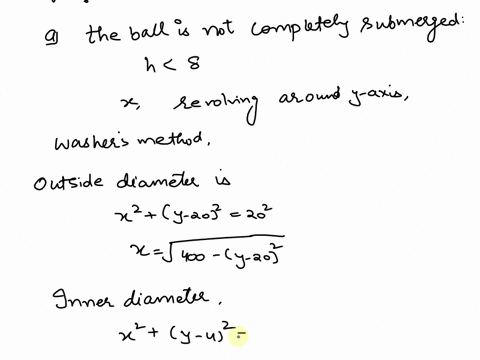 a) the ball is not completely submerged:
h < 8
x, revolving around y-axis,
washer's method,
Outside diameter is
x² + (y-20)² = 20²
x = √(400 - (y-20)²)
Inner diameter,
x² + (y-4)² =